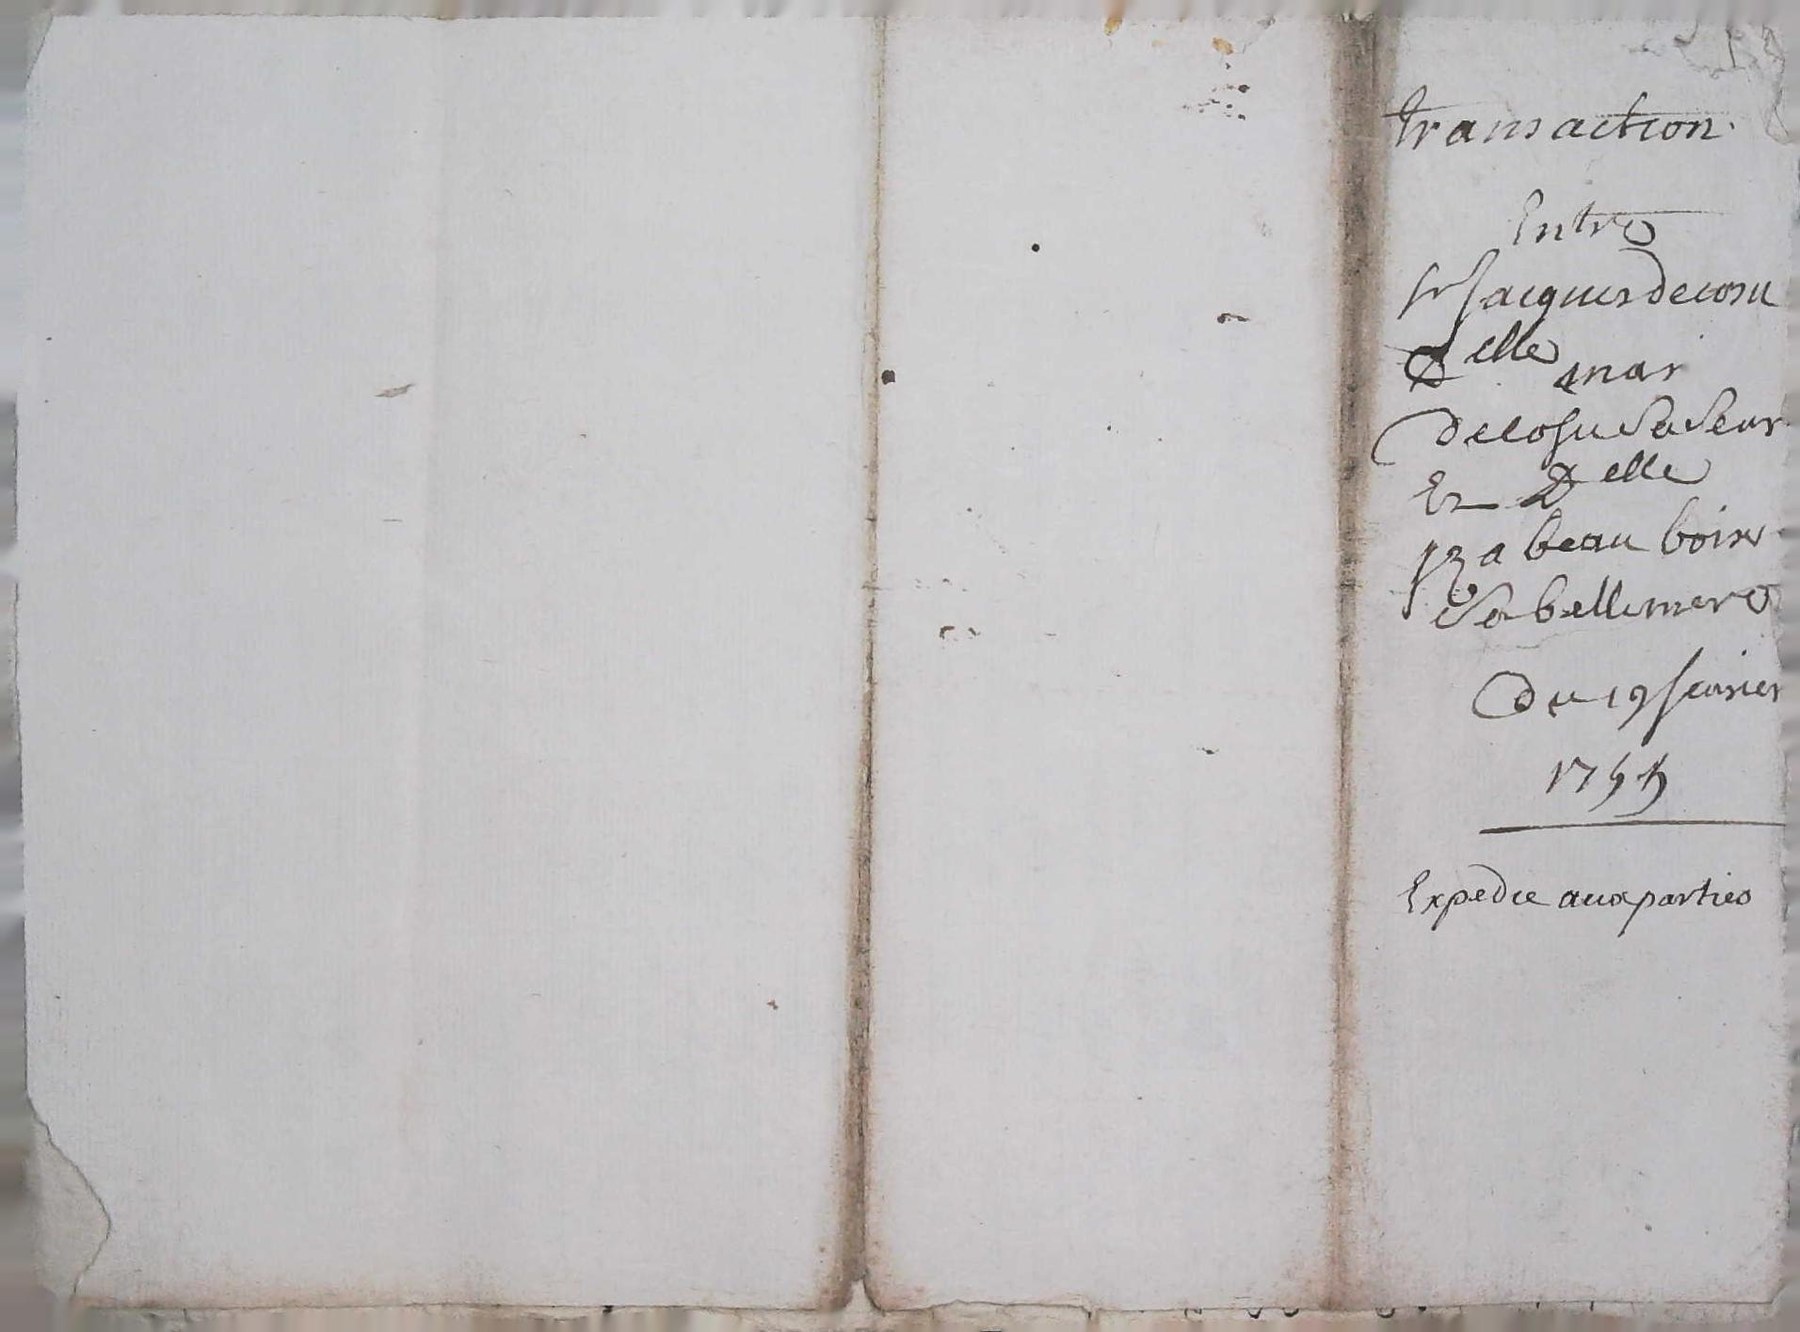 transaction.
Entre
sr Jacques decosu
Delle mar
decosu Sa Seur
Et Delle
Izabeau boise
Sa bellemere
du 19 fevrier
1755
Expedie aux parties